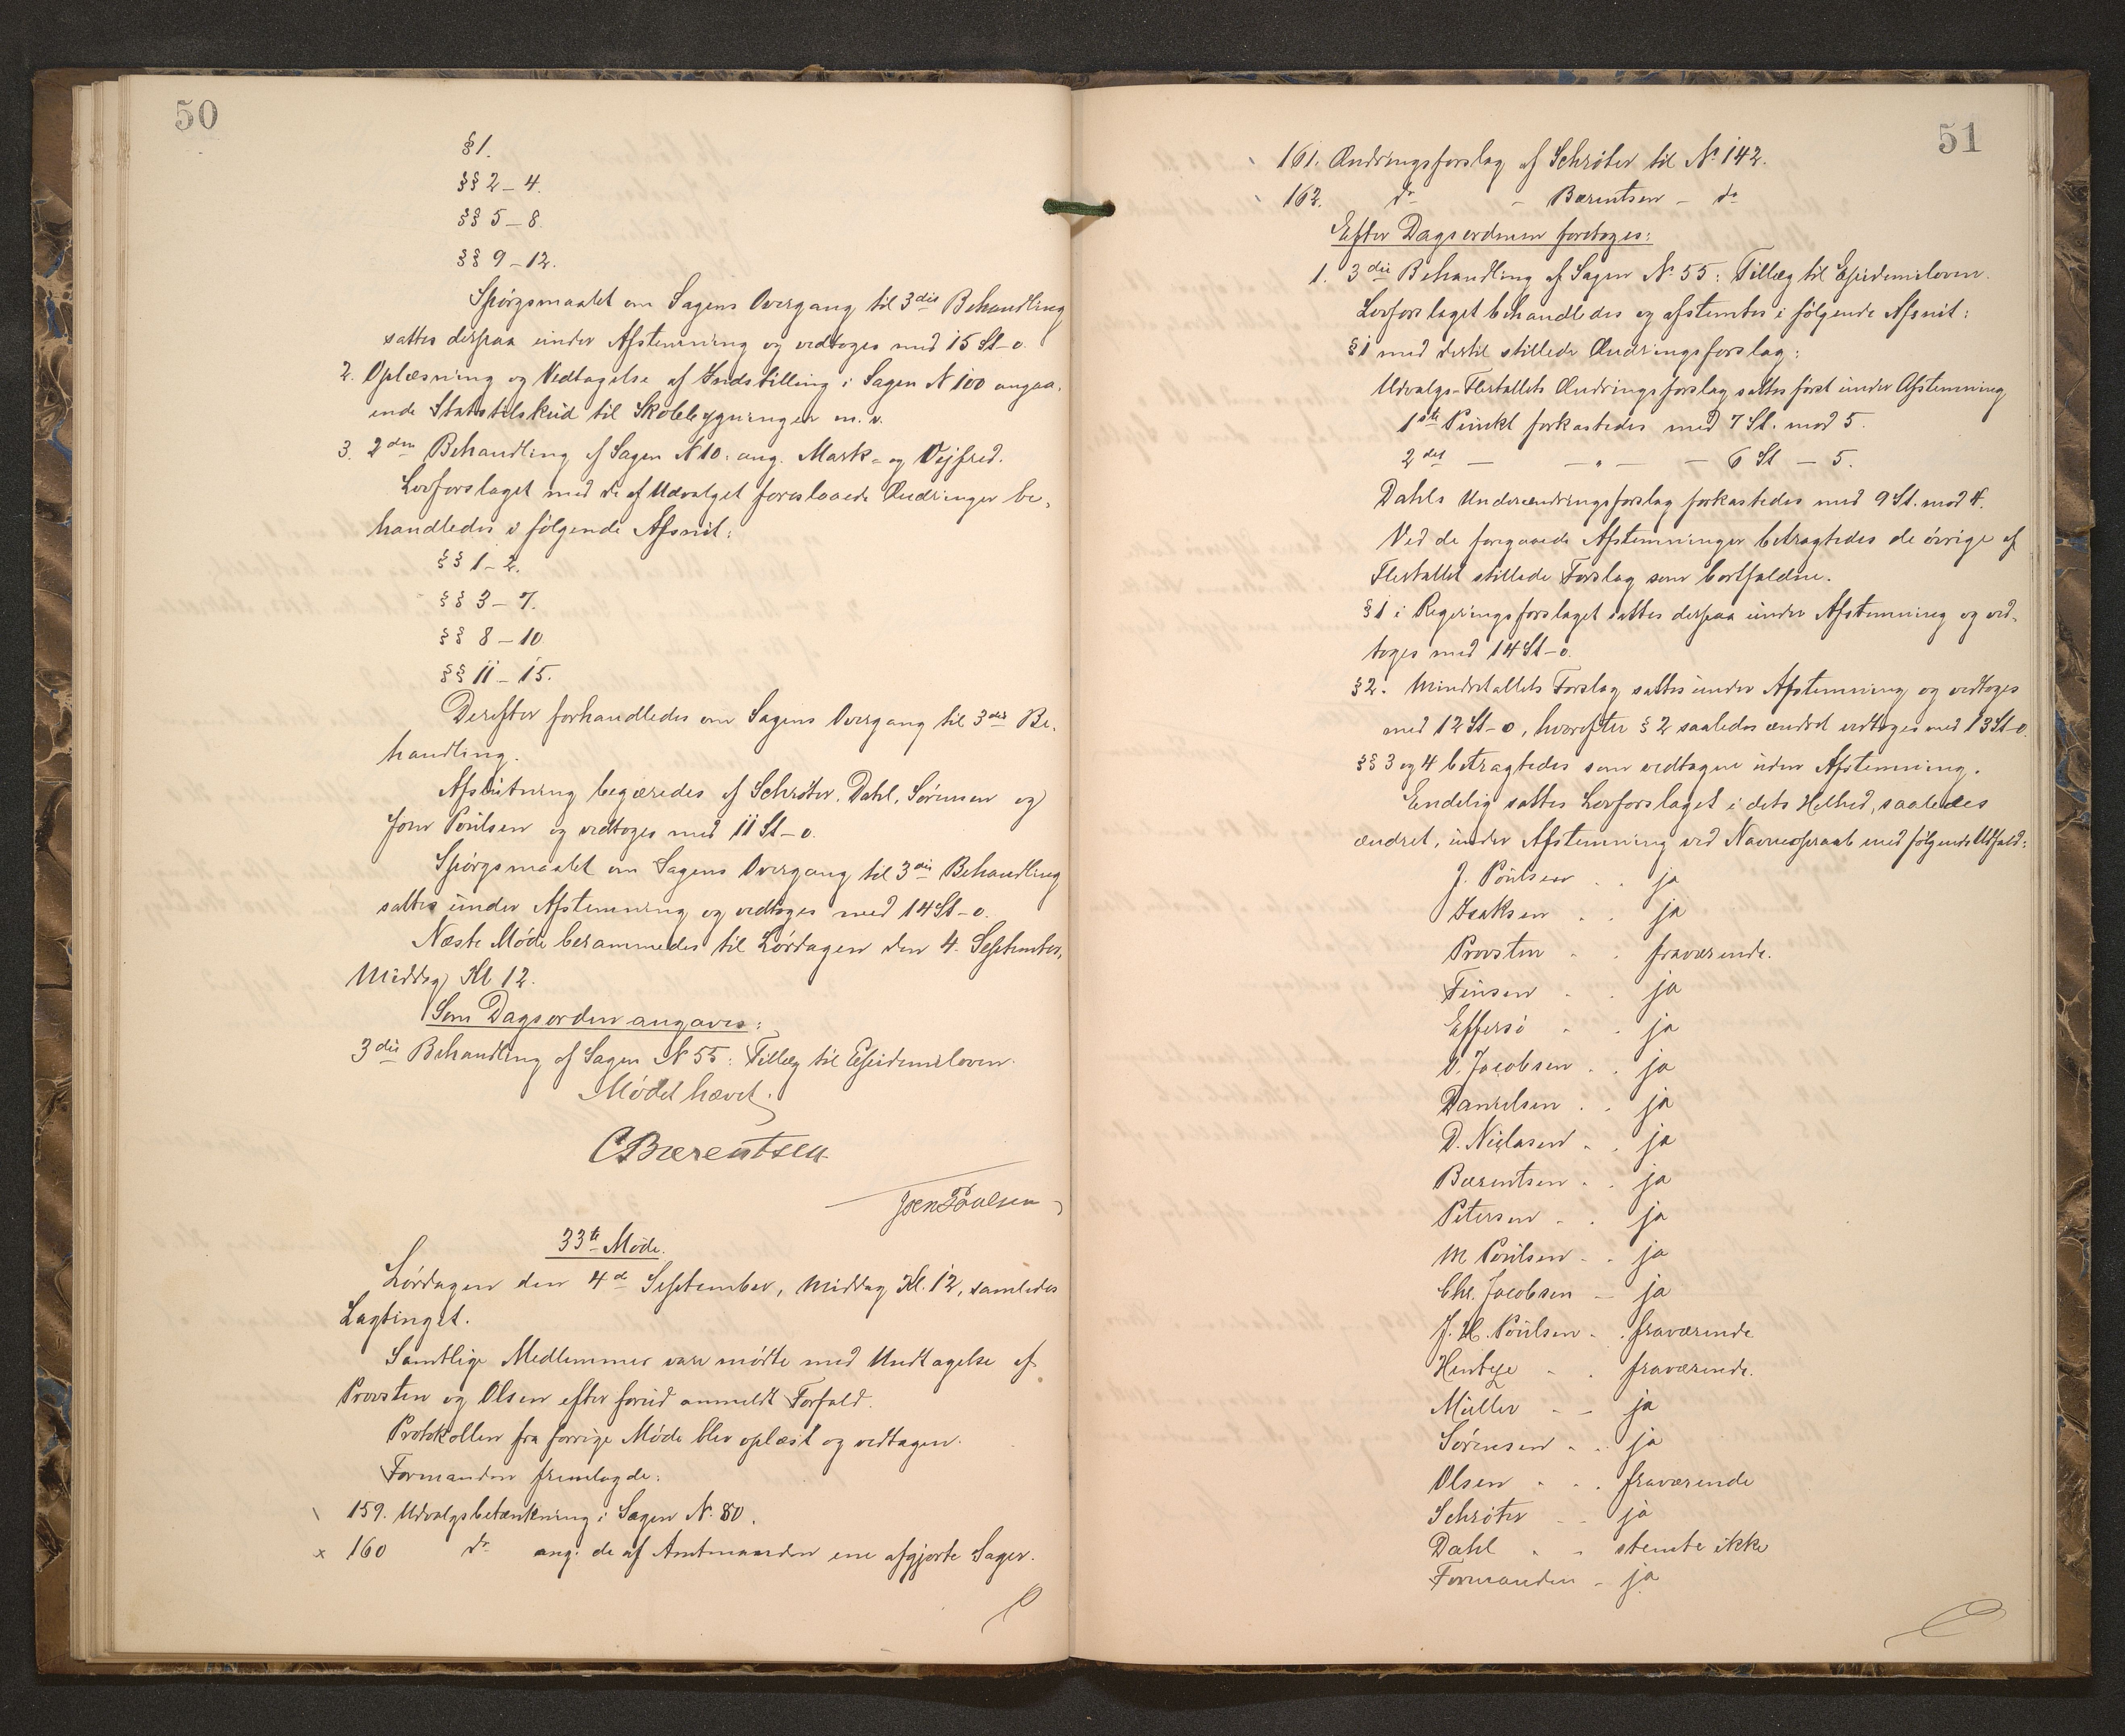 50
§ 1.
§§ 2 – 4.
§§ 5 – 8
§§ 9 – 12.
Spörgsmaalet om Sagens Overgang til 3die Behandling
sattes derpaa under Afstemning og vedtoges med 15 St – o.
2. Oplæsning og Vedtagelse af Indstilling i Sagen N 100 angaa-
ende Statstilskud til Skolebygninger m. v.
3. 2den Behandling af Sagen N 10: ang. Mark- og Vejfred.
Lovforslaget med de af Udvalget foreslaaede Ændringer be-
handledes i fölgende Afsnit:
§§ 1 – 2.
§§ 3 – 7.
§§ 8 – 10
§§ 11 – 15.
Derefter forhandledes om Sagens Overgang til 3die Be-
handling.
Afslutning begæredes af Schröter, Dahl, Sörensen og
Joen Poulsen og vedtoges med 11 St – o.
Spörgsmaalet om Sagens Overgang til 3die Behandling
sattes under Afstemning og vedtoges med 14 St – o.
Næste Möde berammedes til Lördagen den 4. September,
Middag Kl 12.
Som Dagsorden angaves:
3die Behandling af Sagen N 55: Tillæg til Epidemiloven.
Mödet hævet.
C Bærentsen
Joen Poulsen
33te Möde.
Lördagen den 4de September, Middag Kl. 12, samledes
Lagtinget.
Samtlige Medlemmer vare mödte med Undtagelse af
Provsten og Olsen efter forud anmeldt Forfald.
Protokollen fra forrige Möde blev oplæst og vedtagen.
Formanden fremlagde:
159. Udvalgsbetænkning i Sagen N. 80.
x 160 do ang. de af Amtmanden ene afgjorte Sager.
51
161. Ændringsforslag af Schröter til No 142.
162. do – Bærentsen – do
Efter Dagsordenen foretoges:
1. 3die Behandling af Sagen No 55: Tillæg til Epidemiloven.
Lovforslaget behandledes og afstemtes i fölgende Afsnit:
§ 1 med dertil stillede Ændringsforslag:
Udvalgs-Flertallets Ændringsforslag sattes först under Afstemning
1ste Punkt forkastedes med 7 St. mod 5.
2det — — " — — 6 St – 5.
Dahls Underændringsforslag forkastedes med 9 St. mod 4.
Ved de foregaaede Afstemninger betragtedes de övrige af
Flertallet stillede Forslag som bortfaldne.
§ 1 i Regeringsforslaget sattes derpaa under Afstemning og ved-
toges med 14 St – o.
§ 2. Mindretallets Forslag sattes under Afstemning og vedtoges
med 12 St – o, hvorefter § 2 saaledes ændret vedtoges med 13 St – o.
§§ 3 og 4 betragtedes som vedtagne uden Afstemning.
Endelig sattes Lovforslaget i dets Helhed, saaledes
ændret, under Afstemning ved Navneopraab med fölgende Udfald:
J. Poulsen . . ja
Isaksen . . ja
Provsten . . fraværende.
Finsen . . ja
Effersö . . ja
O. Jacobsen . . ja
Danielsen . . ja
D. Nielasen . . ja
Bærentsen . . ja
Petersen . . ja
M Poulsen . . ja
Chr. Jacobsen – ja
J. H. Poulsen . . fraværende
Hentze . . fraværende.
Müller . – ja
Sörensen . . ja
Olsen . . . fraværende
Schröter – – ja
Dahl . . stemte ikke
Formanden – ja